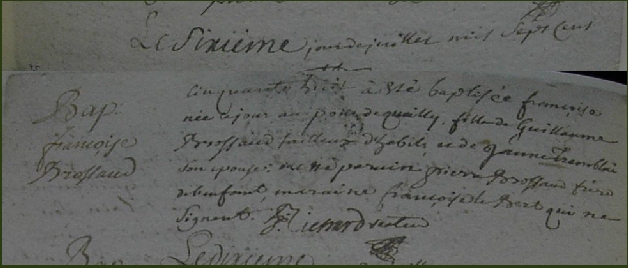 Le Sixiéme jour de juillet mil Sept Cent
Bap
françoise
Brossaud
cinquante huit à été baptisée françoise
née ce jour au pont de quilly, fille de Guillaume
Brossaud tailleur d'habits et de janne Tremblai
son epouse: parein pierre Brossaud frere
de l'enfant, maraine françoise le Bert qui ne
signent. Richard recteur
Bap Le dixieme